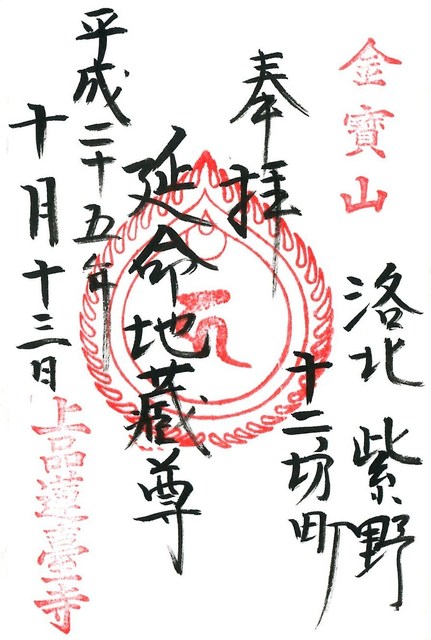 金寶山
洛北 紫野
十二坊町
奉拝
延命地藏尊
平成二十五年
十月十三日
上品蓮臺寺